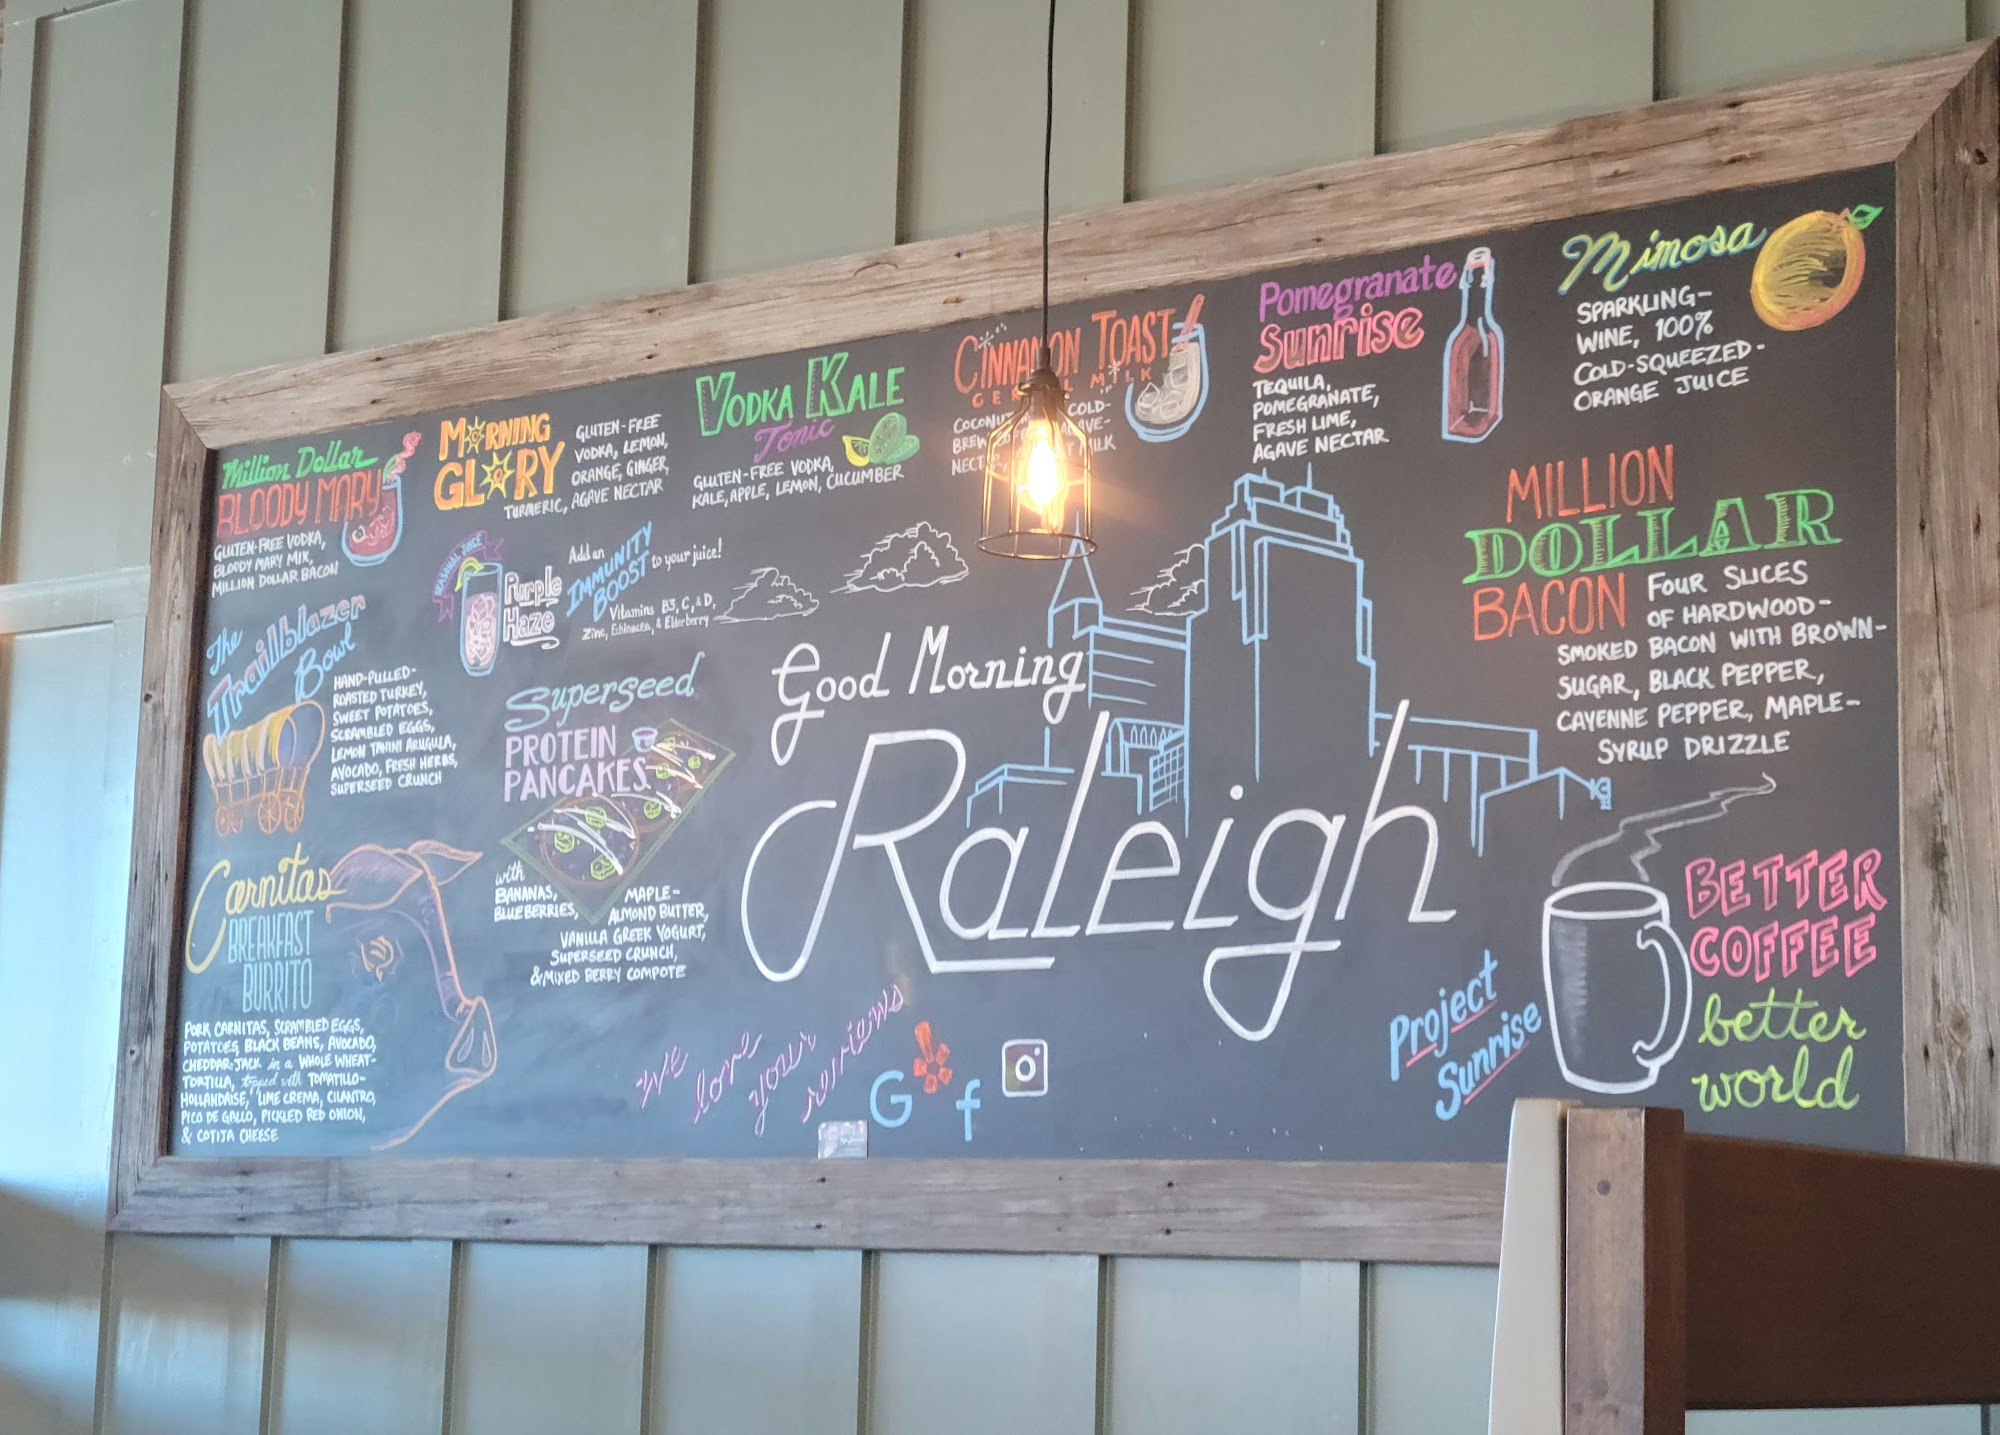 Million Dollar
BLOODY MARY
GLUTEN-FREE VODKA,
BLOODY MARY MIX,
MILLION DOLLAR BACON
MORNING
GLORY
GLUTEN-FREE
VODKA, LEMON,
ORANGE, GINGER,
TURMERIC, AGAVE NECTAR
VODKA KALE
Tonic
GLUTEN-FREE VODKA,
KALE, APPLE, LEMON, CUCUMBER
CINNAMON TOAST
MILK
COCONUT COLD-
NECTAR, MILK
Pomegranate
Sunrise
TEQUILA,
POMEGRANATE,
FRESH LIME,
AGAVE NECTAR
Mimosa
SPARKLING-
WINE, 100%
COLD-SQUEEZED-
ORANGE JUICE
SEASONAL JUICE
Purple
Haze
Add an
IMMUNITY
BOOST to your juice!
Vitamins B3, C, & D,
Zinc, Echinacea, & Elderberry
The
Trailblazer
Bowl
HAND-PULLED-
ROASTED TURKEY,
SWEET POTATOES,
SCRAMBLED EGGS,
LEMON TAHINI ARUGULA,
AVOCADO, FRESH HERBS,
SUPERSEED CRUNCH
Superseed
PROTEIN
PANCAKES
with
BANANAS, MAPLE-
BLUEBERRIES, ALMOND BUTTER,
VANILLA GREEK YOGURT,
SUPERSEED CRUNCH,
& MIXED BERRY COMPOTE
Good Morning
Raleigh
MILLION
DOLLAR
BACON FOUR SLICES
OF HARDWOOD-
SMOKED BACON WITH BROWN-
SUGAR, BLACK PEPPER,
CAYENNE PEPPER, MAPLE-
SYRUP DRIZZLE
Carnitas
BREAKFAST
BURRITO
PORK CARNITAS, SCRAMBLED EGGS,
POTATOES, BLACK BEANS, AVOCADO,
CHEDDAR-JACK in a WHOLE WHEAT-
TORTILLA, topped with TOMATILLO-
HOLLANDAISE, LIME CREMA, CILANTRO,
PICO DE GALLO, PICKLED RED ONION,
& COTIJA CHEESE
We
love
your
reviews
G
f
Project
Sunrise
BETTER
COFFEE
better
world